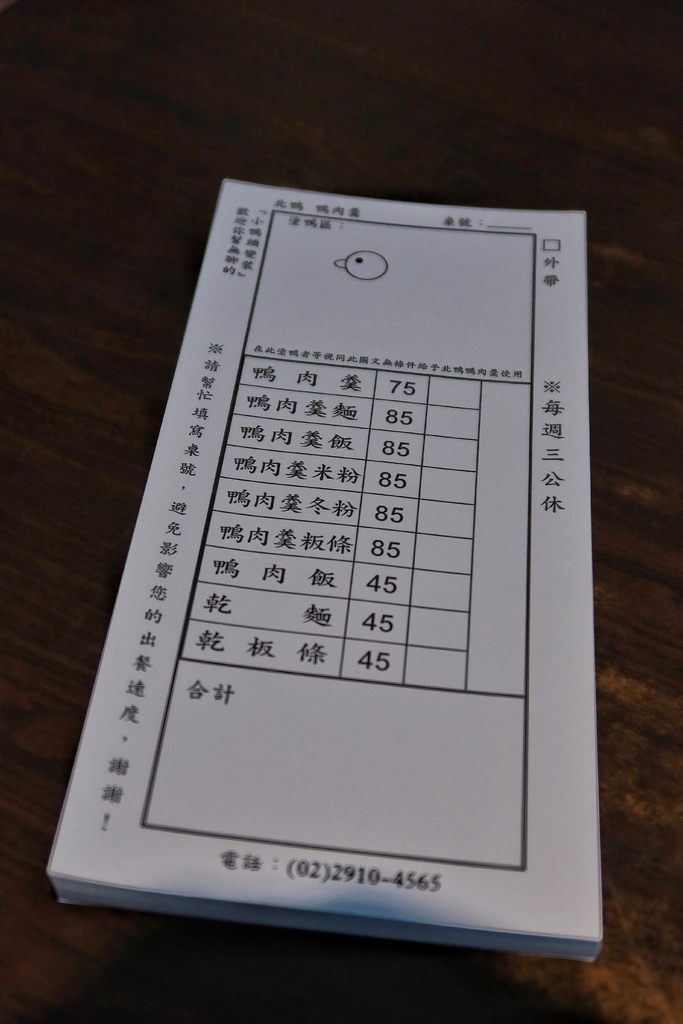 北鴨 鴨肉羹 桌號：______
塗鴨區：
『小鴨頭變裝』
歡迎你幫無聊的
□外帶
在此塗鴨者等視同此圖文無條件給予北鴨鴨肉羹使用
鴨肉羹 75
鴨肉羹麵 85
鴨肉羹飯 85
鴨肉羹米粉 85
鴨肉羹冬粉 85
鴨肉羹粄條 85
鴨肉飯 45
乾麵 45
乾板條 45
合計
※請幫忙填寫桌號，避免影響您的出餐速度，謝謝！
※每週三公休
電話：(02)2910-4565